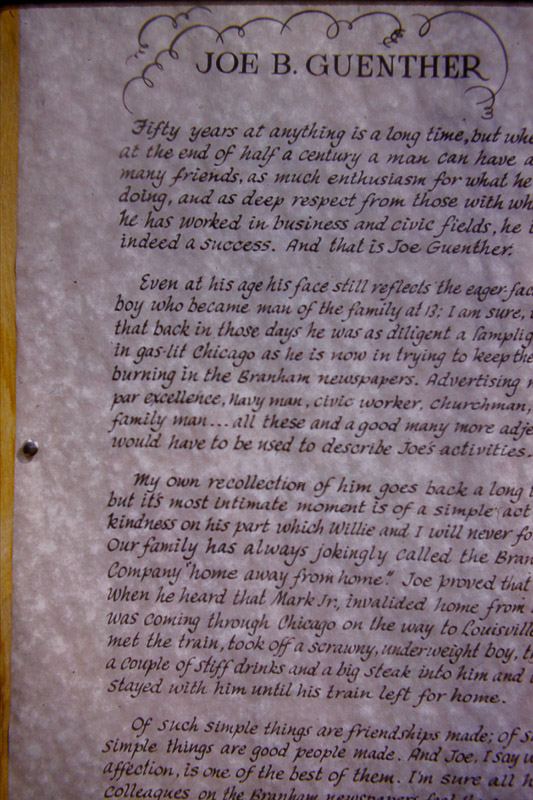 JOE B. GUENTHER
Fifty years at anything is a long time, but
at the end of half a century a man can have
many friends, as much enthusiasm for what he
doing, and as deep respect from those with
he has worked in business and civic fields, he
indeed a success. And that is Joe Guenther.
Even at his age his face still reflects the eager
boy who became man of the family at 13; I am sure,
that back in those days he was as diligent a
in gas-lit Chicago as he is now in trying to keep the
burning in the Branham newspapers. Advertising
par excellence, Navy man, civic worker, churchman,
family man... all these and a good many more
would have to be used to describe Joe's activities.
My own recollection of him goes back a long
but it's most intimate moment is of a simple act
kindness on his part which Willie and I will never
Our family has always jokingly called the
Company "home away from home." Joe proved that
when he heard that Mark Jr., invalided home from
was coming through Chicago on the way to Louisville
met the train, took off a scrawny, underweight boy,
a couple of stiff drinks and a big steak into him and
stayed with him until his train left for home.
Of such simple things are friendships made; of
simple things are good people made. And Joe, I say
affection, is one of the best of them. I'm sure all
colleagues on the Branham newspapers feel the